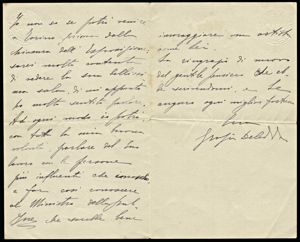 Io non so se potrò venire
a Torino prima della
chiusura dell'Esposizione:
sarei molto contenta
di vedere la sua bellis
molto sentito parlare.
Ad ogni modo io potrò
con tutta la mia buona
volontà parlare del suo
lavoro con le persone
più influenti che conosco
e far così conoscere
al Ministro della
che sarebbe bene
incoraggiare un artista
come lei.
La ringrazio di nuovo
del gentile pensiero che eb
be scrivendomi, e le
auguro ogni miglior fortuna
Grazia Deledda